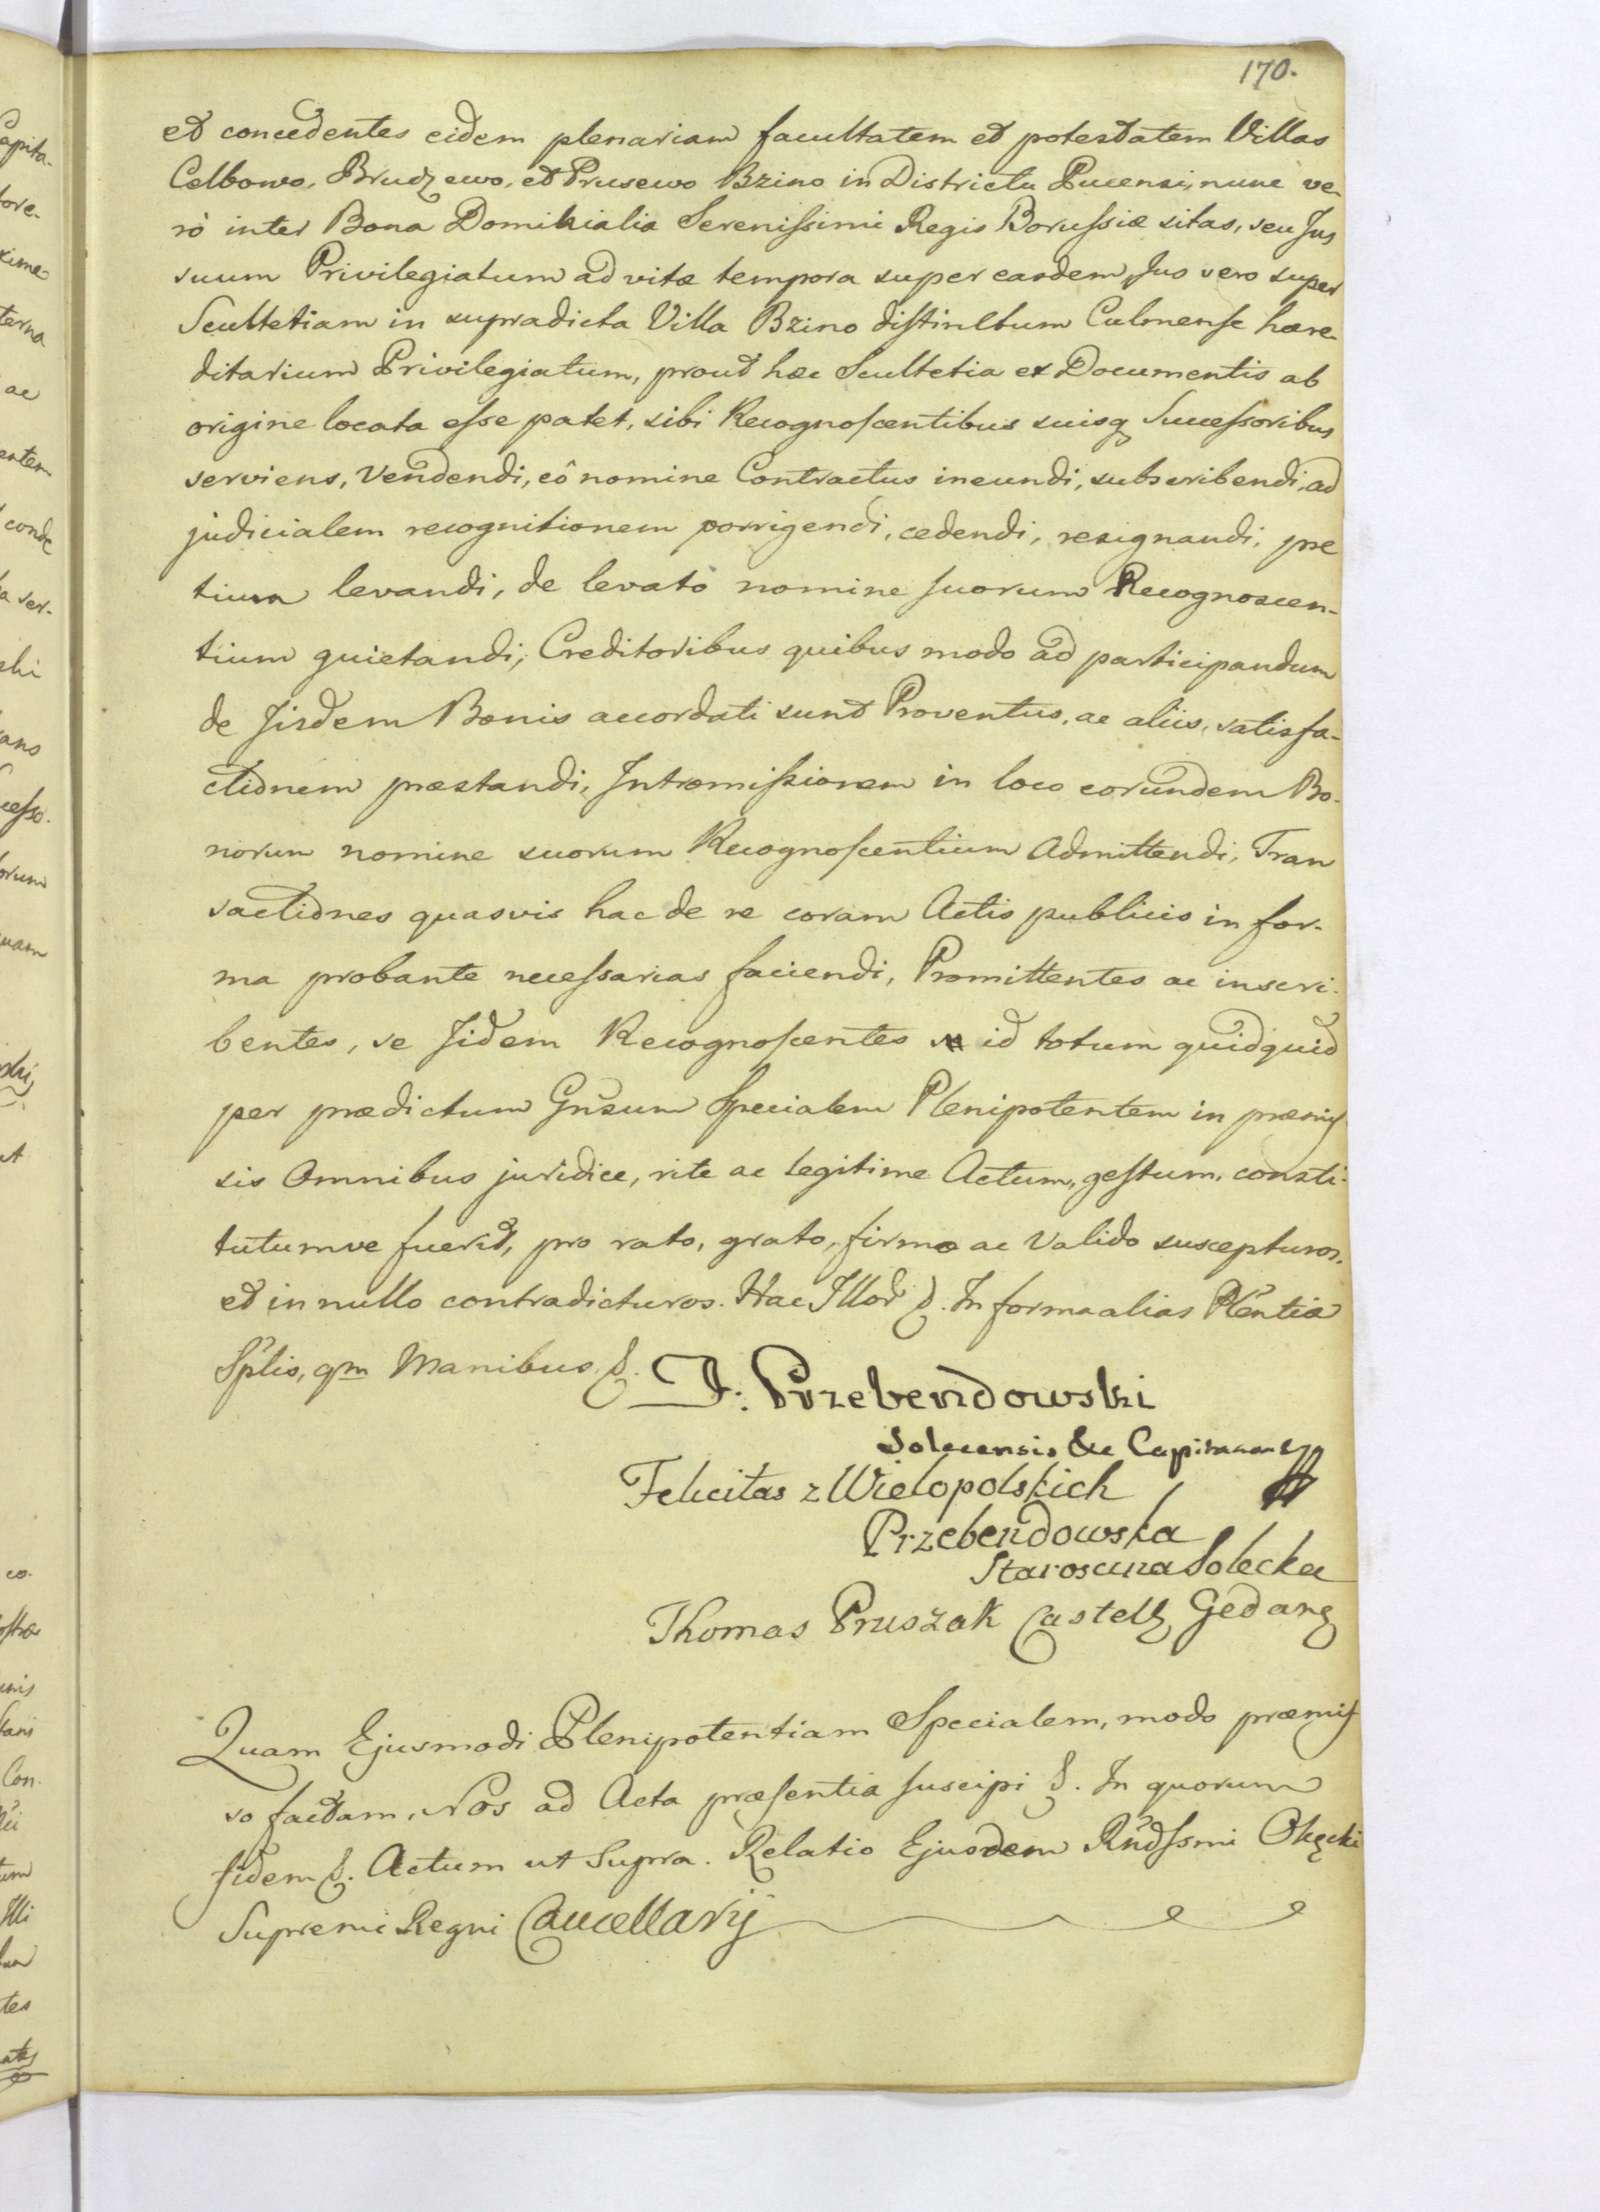 170.
et concedentes eidem plenariam facultatem et potestatem Villas
Celbowo, Brudzewo, et Prusewo Bzino in Districtu Pucensi, nunc ve-
rò inter Bona Domikialia Serenissimi Regis Borussiæ sitas, seu Jus
suum Privilegiatum ad vitæ tempora super easdem, Jus vero super
Scultetiam in supradicta Villa Bzino distinctum Culmense hære-
ditarium Privilegiatum, prout hæc Scultetia ex Documentis ab
origine locata esse patet, sibi Recognoscentibus suisq Successoribus
serviens, Vendendi, eô nomine Contractus ineundi, subscribendi, ad
judicialem recognitionem porrigendi, cedendi, resignandi, pre
tium levandi, de levato nomine suorum Recognoscen-
tium quietandi, Creditoribus quibus modo ad participandum
de Jisdem Bonis accordati sunt Proventus, ac aliis, satisfa-
ctionem præstandi, Intromissionem in loco eorundem Bo-
norum nomine suorum Recognoscentium Admittendi, Tran
sactiones quasvis hac de re coram Actis publicis in for-
ma probante necessarias faciendi, Promittentes ac inscri-
bentes, se Jidem Recognoscentes id totum quidquid
per prædictum Gnsum Specialem Plenipotentem in præmis
sis Omnibus juridice, rite ac legitime Actum, gestum, consti-
tutumve fuerit, pro rato, grato, firmo ac Valido suscepturos,
et in nullo contradicturos. Hac Illor &. In forma alias Plentia
Splis, qm Manibus &.
J: Przebendowski
Solecensis &c Capitaneus
Felicitas z Wielopolskich
Przebendowska
Staroscina Solecka
Thomas Pruszak Castell Gedan
Quam Ejusmodi Plenipotentiam Specialem, modo præmis
so factam, Nos ad Acta præsentia suscipi &. In quorum
fidem &. Actum ut Supra. Relatio Ejusdem Rndssmi Okęcki
Supremi Regni Cancellarij